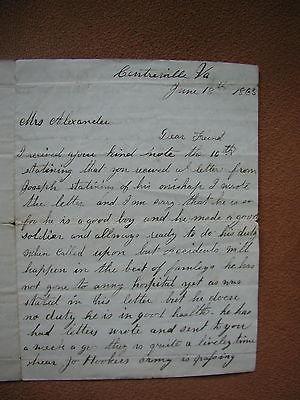 Centreville Va
June 18th 1863
Mrs Alexander
Dear Freind
I received your kind note the 16th
stateing that you received a letter from
Joseph stateing of his mishape I wrote
the letter and I am sory that he is so
for he is a good boy and he made a good
soldier and allways ready to do his duty
when called upon but accidents will
happen in the best of familys he has
not gone to anny hospital yet as was
stated in this letter but he doese
no duty he is in good health he has
had letters wrote and sent to you
a week a go this is quite a lively time
hear Jo Hookers army is passing